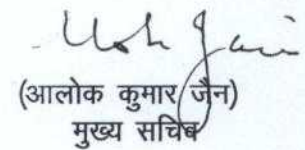 (आलोक कुमार जैन)
मुख्य सचिव